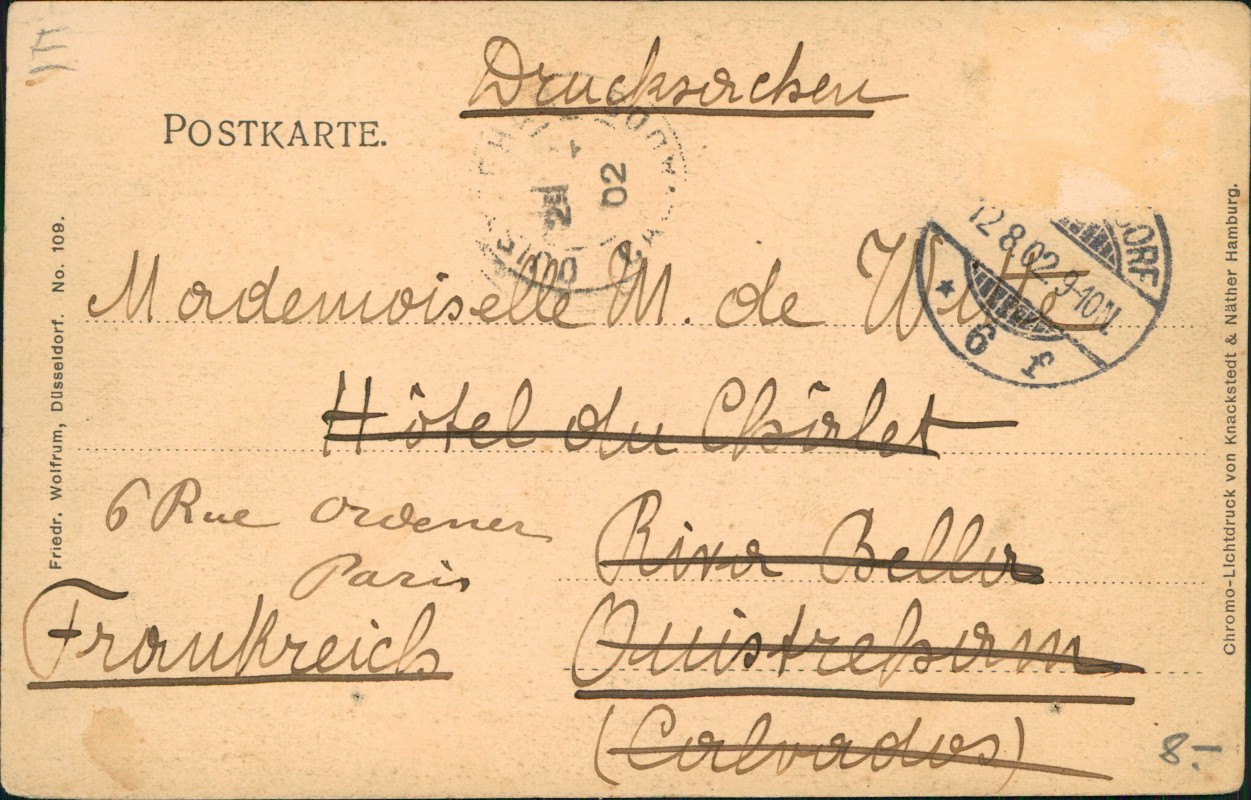 Drucksachen
POSTKARTE.
02
12.8.02.9-10N.
DORF
6 f
Mademoiselle M. de Witte
Hôtel du Châlet
6 Rue Ordener
Paris
Riva Bella
Frankreich
Ouistreham
(Calvados)
8.-
Friedr. Wolfrum, Düsseldorf. No. 109.
Chromo-Lichtdruck von Knackstedt & Näther Hamburg.